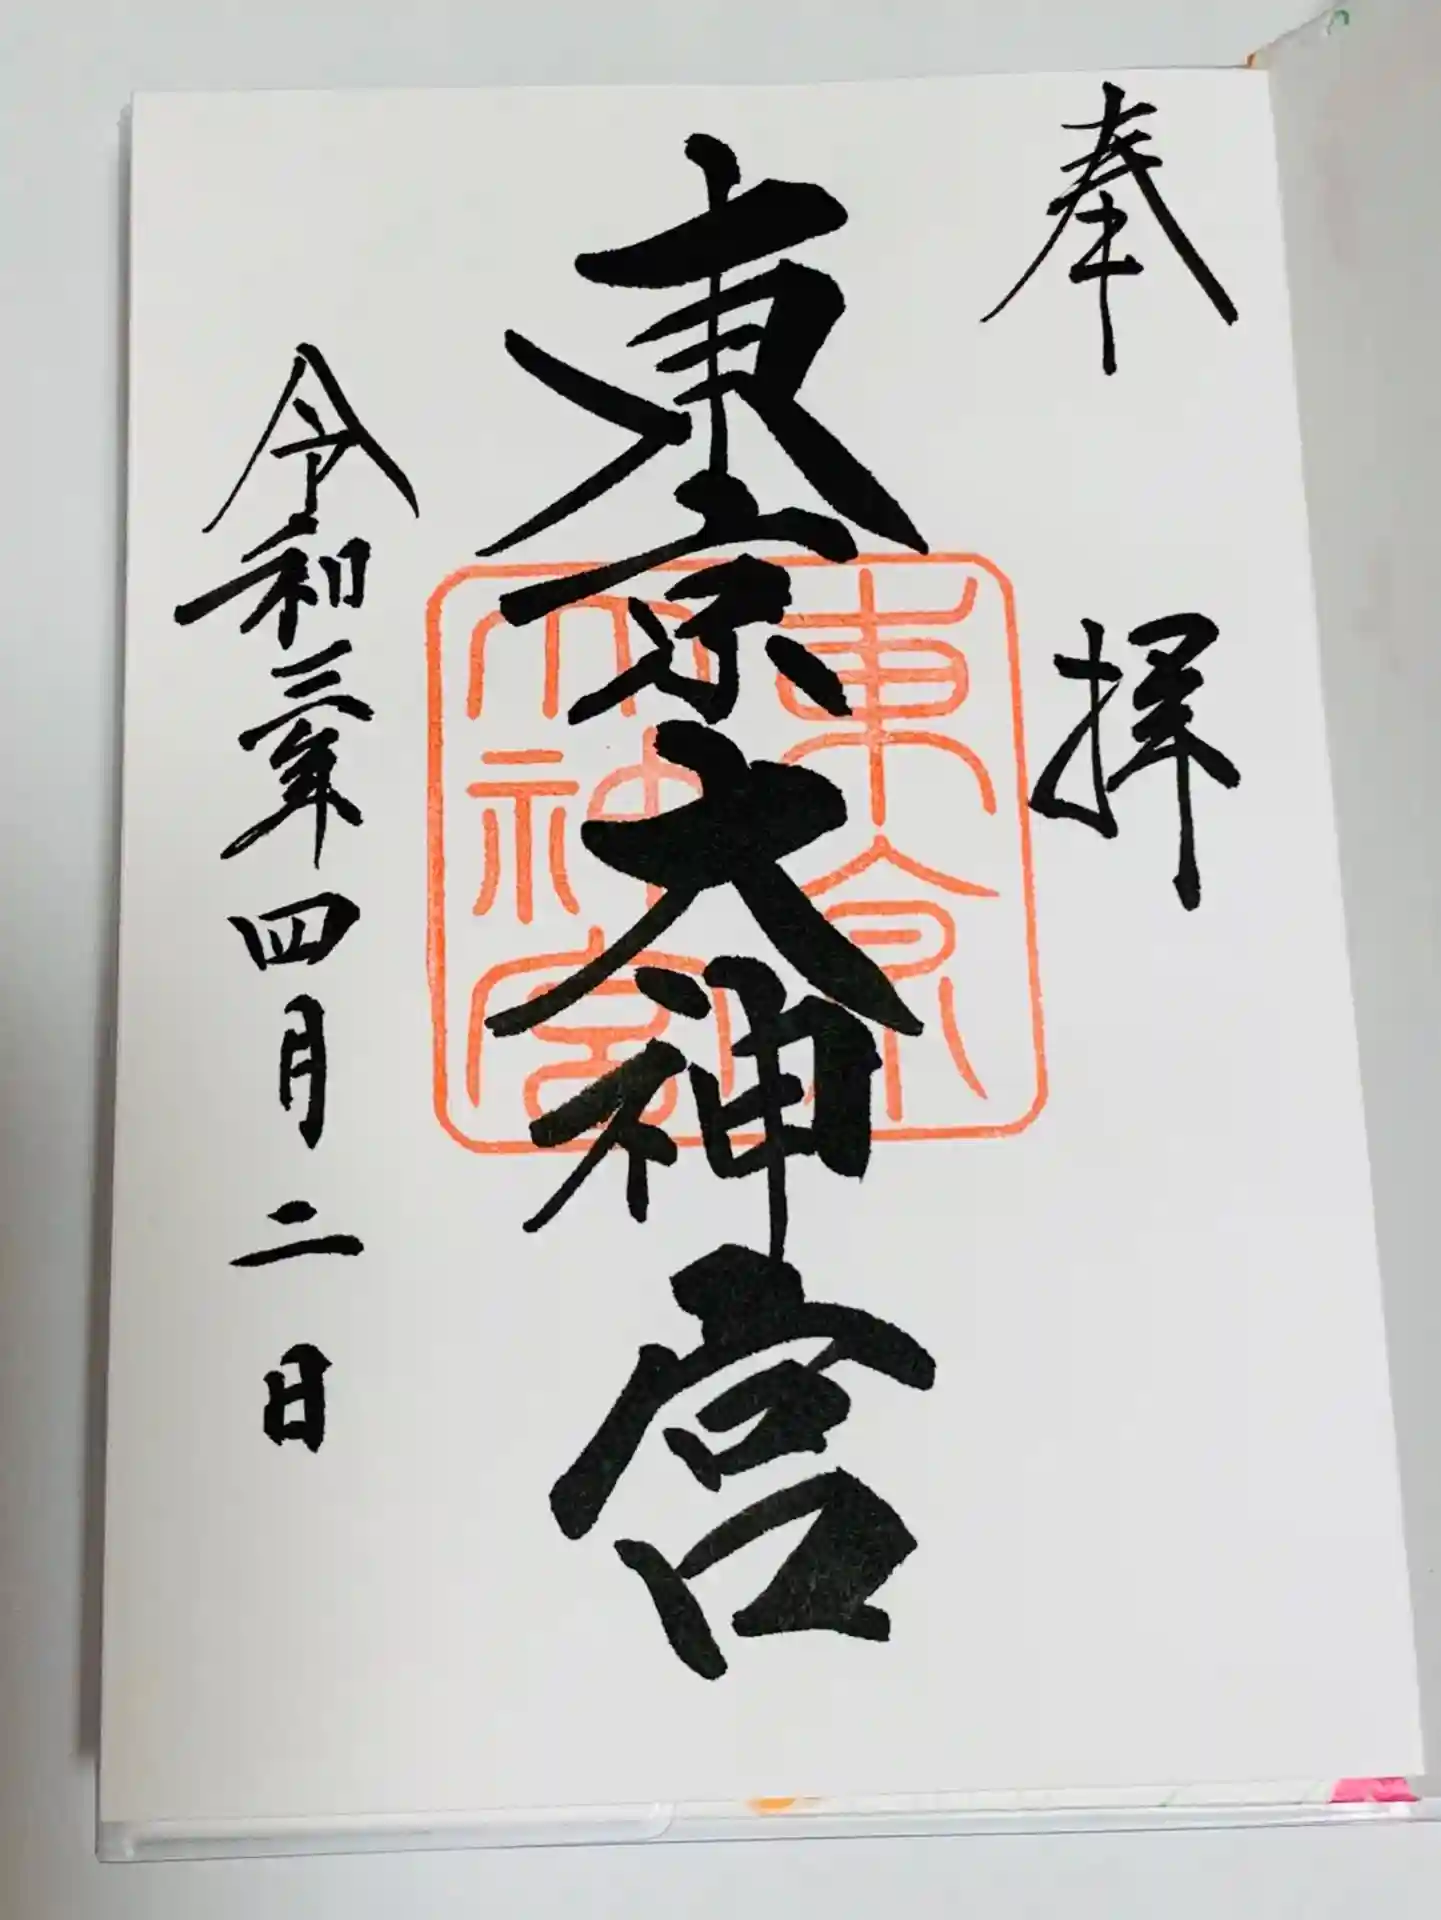 奉拝
東京大神宮
東京
大神宮
令和三年四月二日